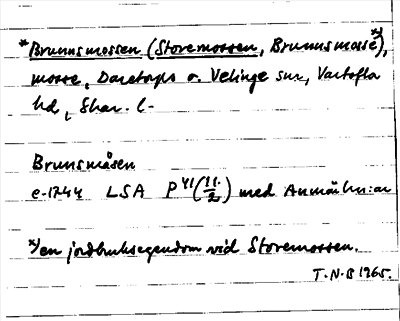 *Brunnsmossen (Storemossen, Brunnsmosse x)),
mosse, Daretorps o. Velinge snr, Vartofta
hd, Skar. l.
Brunsmåsen
c. 1744 LSA P 41 (11/2) med Anmärkn:ar
x) en jordbruksegendom vid Storemossen.
T.N.B 1965.